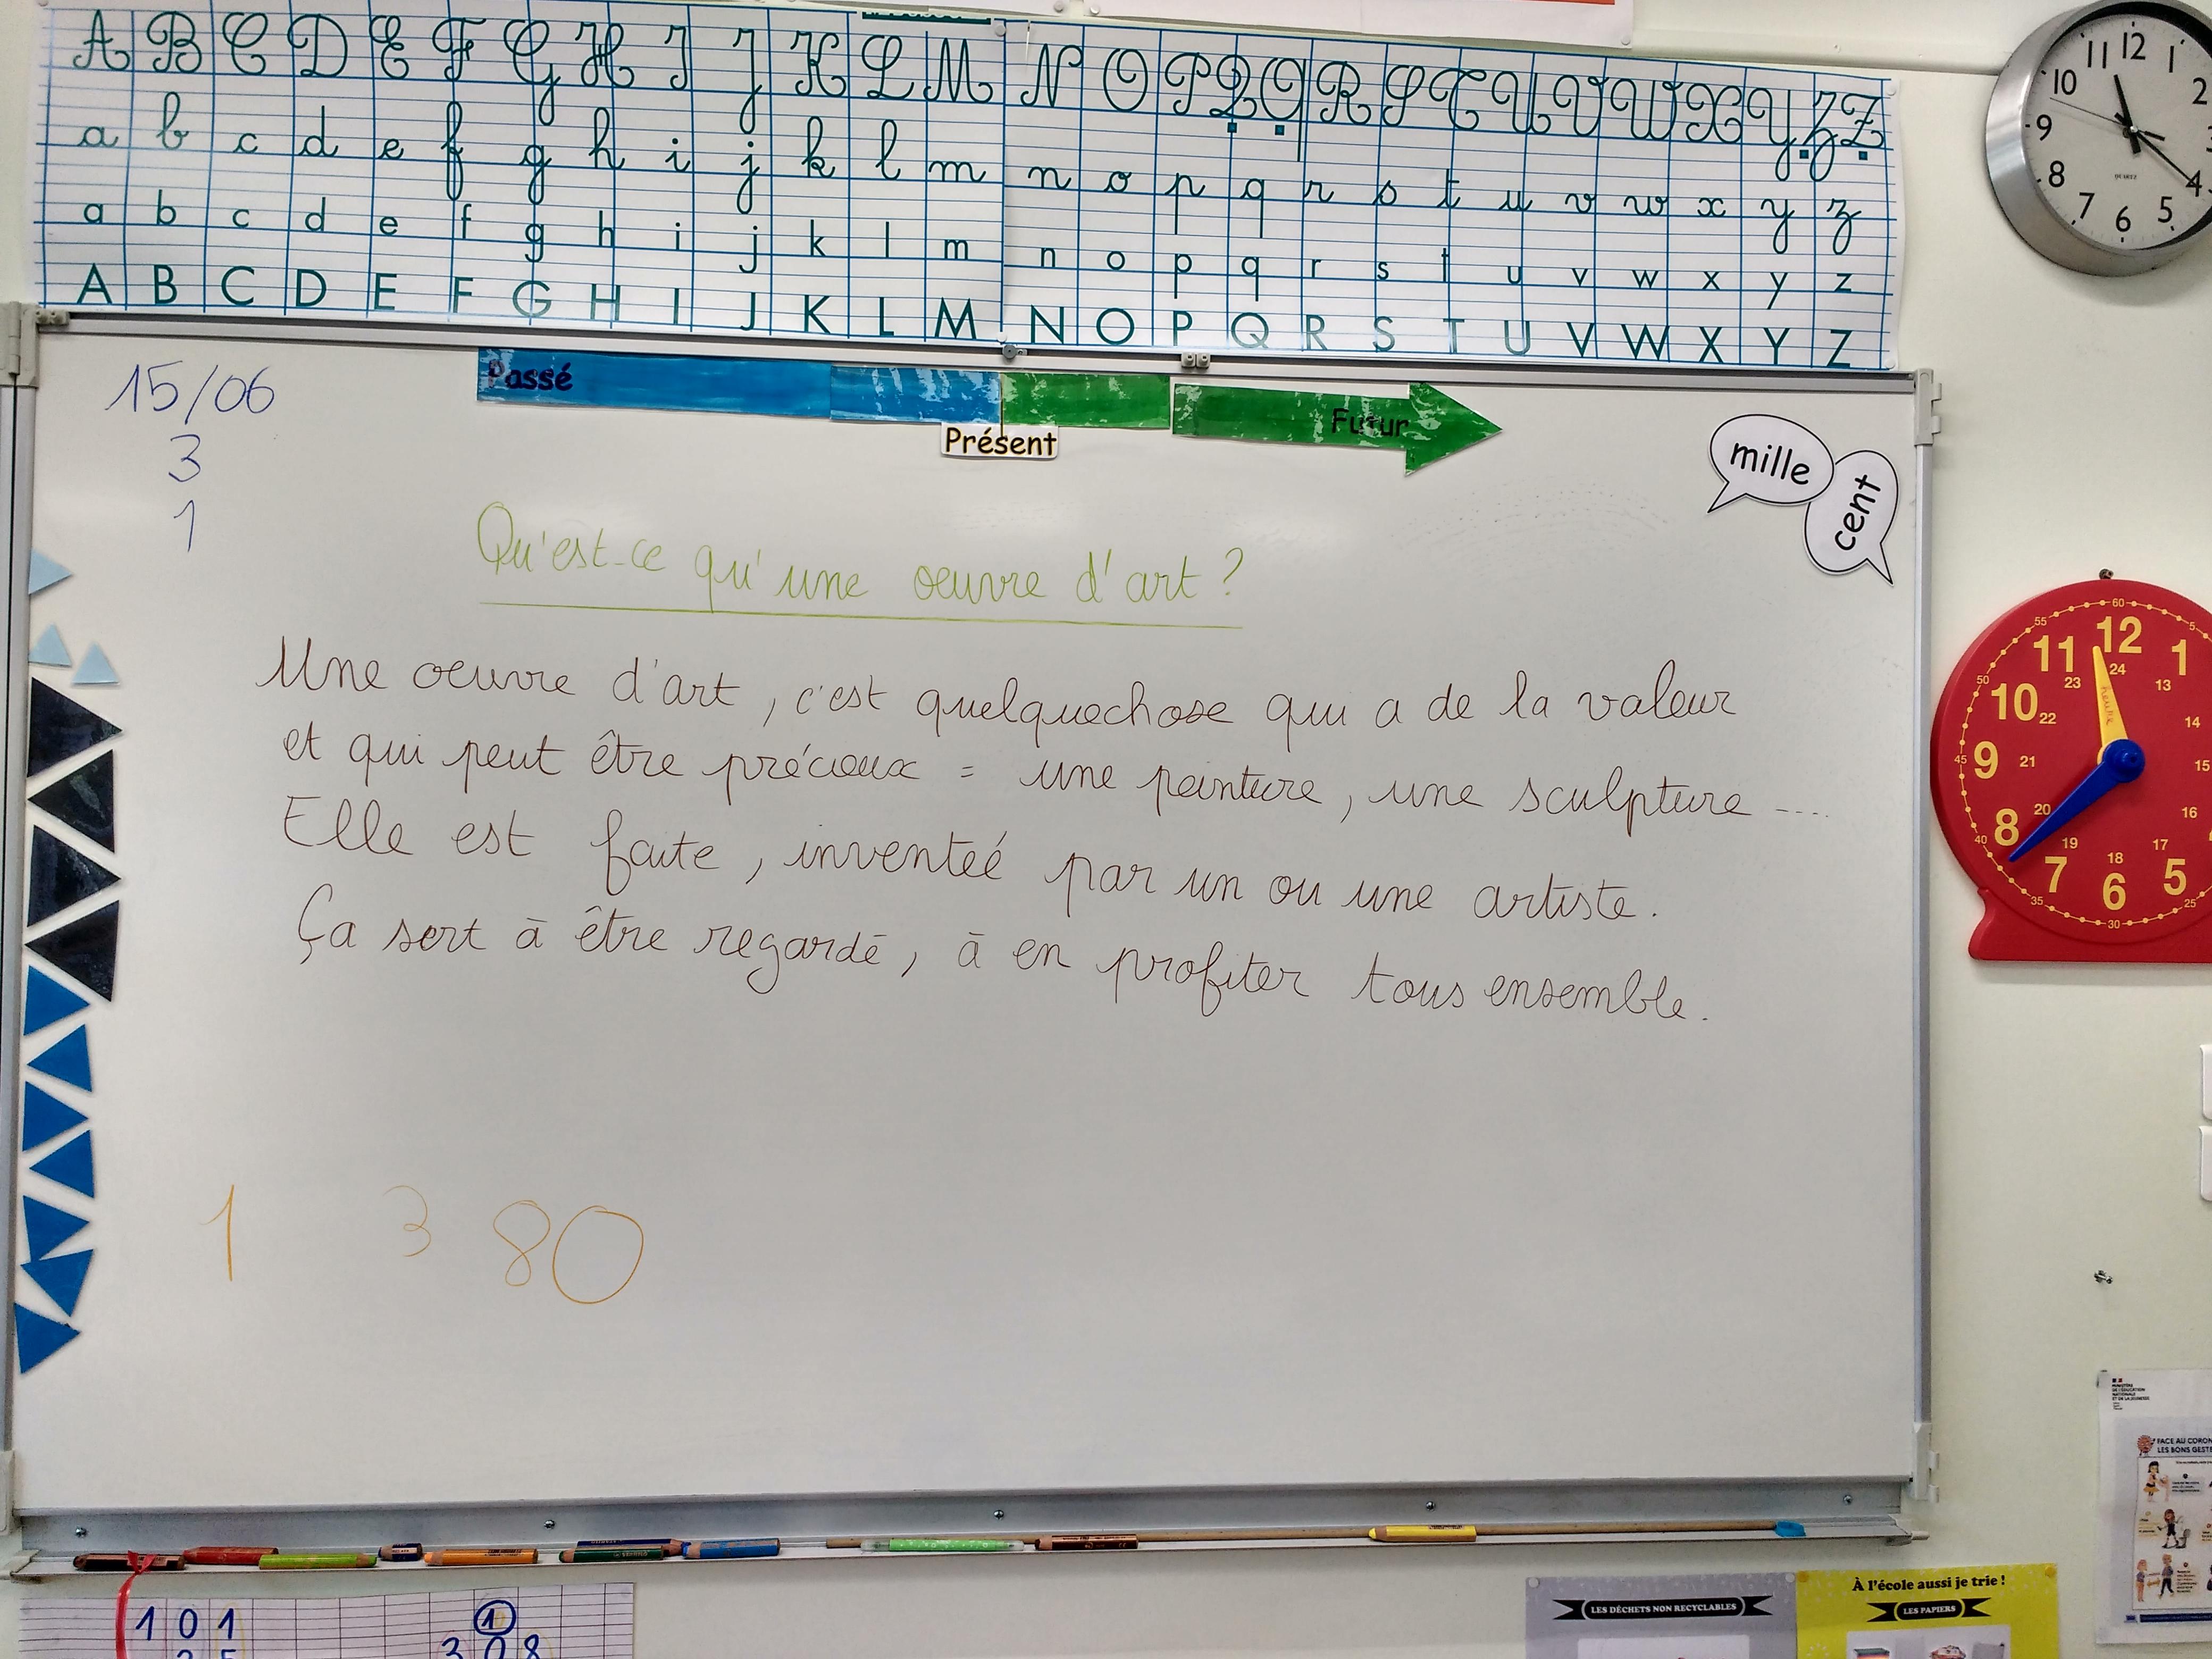 A B C D E F G H I J K L M N O P Q Q R S T U V W X Y Z Z
a b c d e f g h i j k l m n o p q r s t u v w x y z
a b c d e f g h i j k l m n o p q r s t u v w x y z
A B C D E F G H I J K L M N O P Q R S T U V W X Y Z
11 12 1
10 2
9 3
8 4
7 6 5
QUARTZ
15/06
3
1
Passé
Présent
Futur
mille
cent
Qu'est-ce qu'une oeuvre d'art ?
Une oeuvre d'art, c'est quelquechose qui a de la valeur
et qui peut être précieux = une peinture, une sculpture ....
Elle est faite, inventeé par un ou une artiste.
Ça sert à être regardé, à en profiter tous ensemble.
1 3 80
60
55 5
11 12 1
24
23 13
50
10 22 14
heure
45 9 21 15
20 16
40 8 19 18 17
7 6 5
35 30 25
MINISTÈRE
DE L'ÉDUCATION
NATIONALE
ET DE LA JEUNESSE
FACE AU CORON
LES BONS GESTE
101
1
308
LES DÉCHETS NON RECYCLABLES
À l'école aussi je trie !
LES PAPIERS